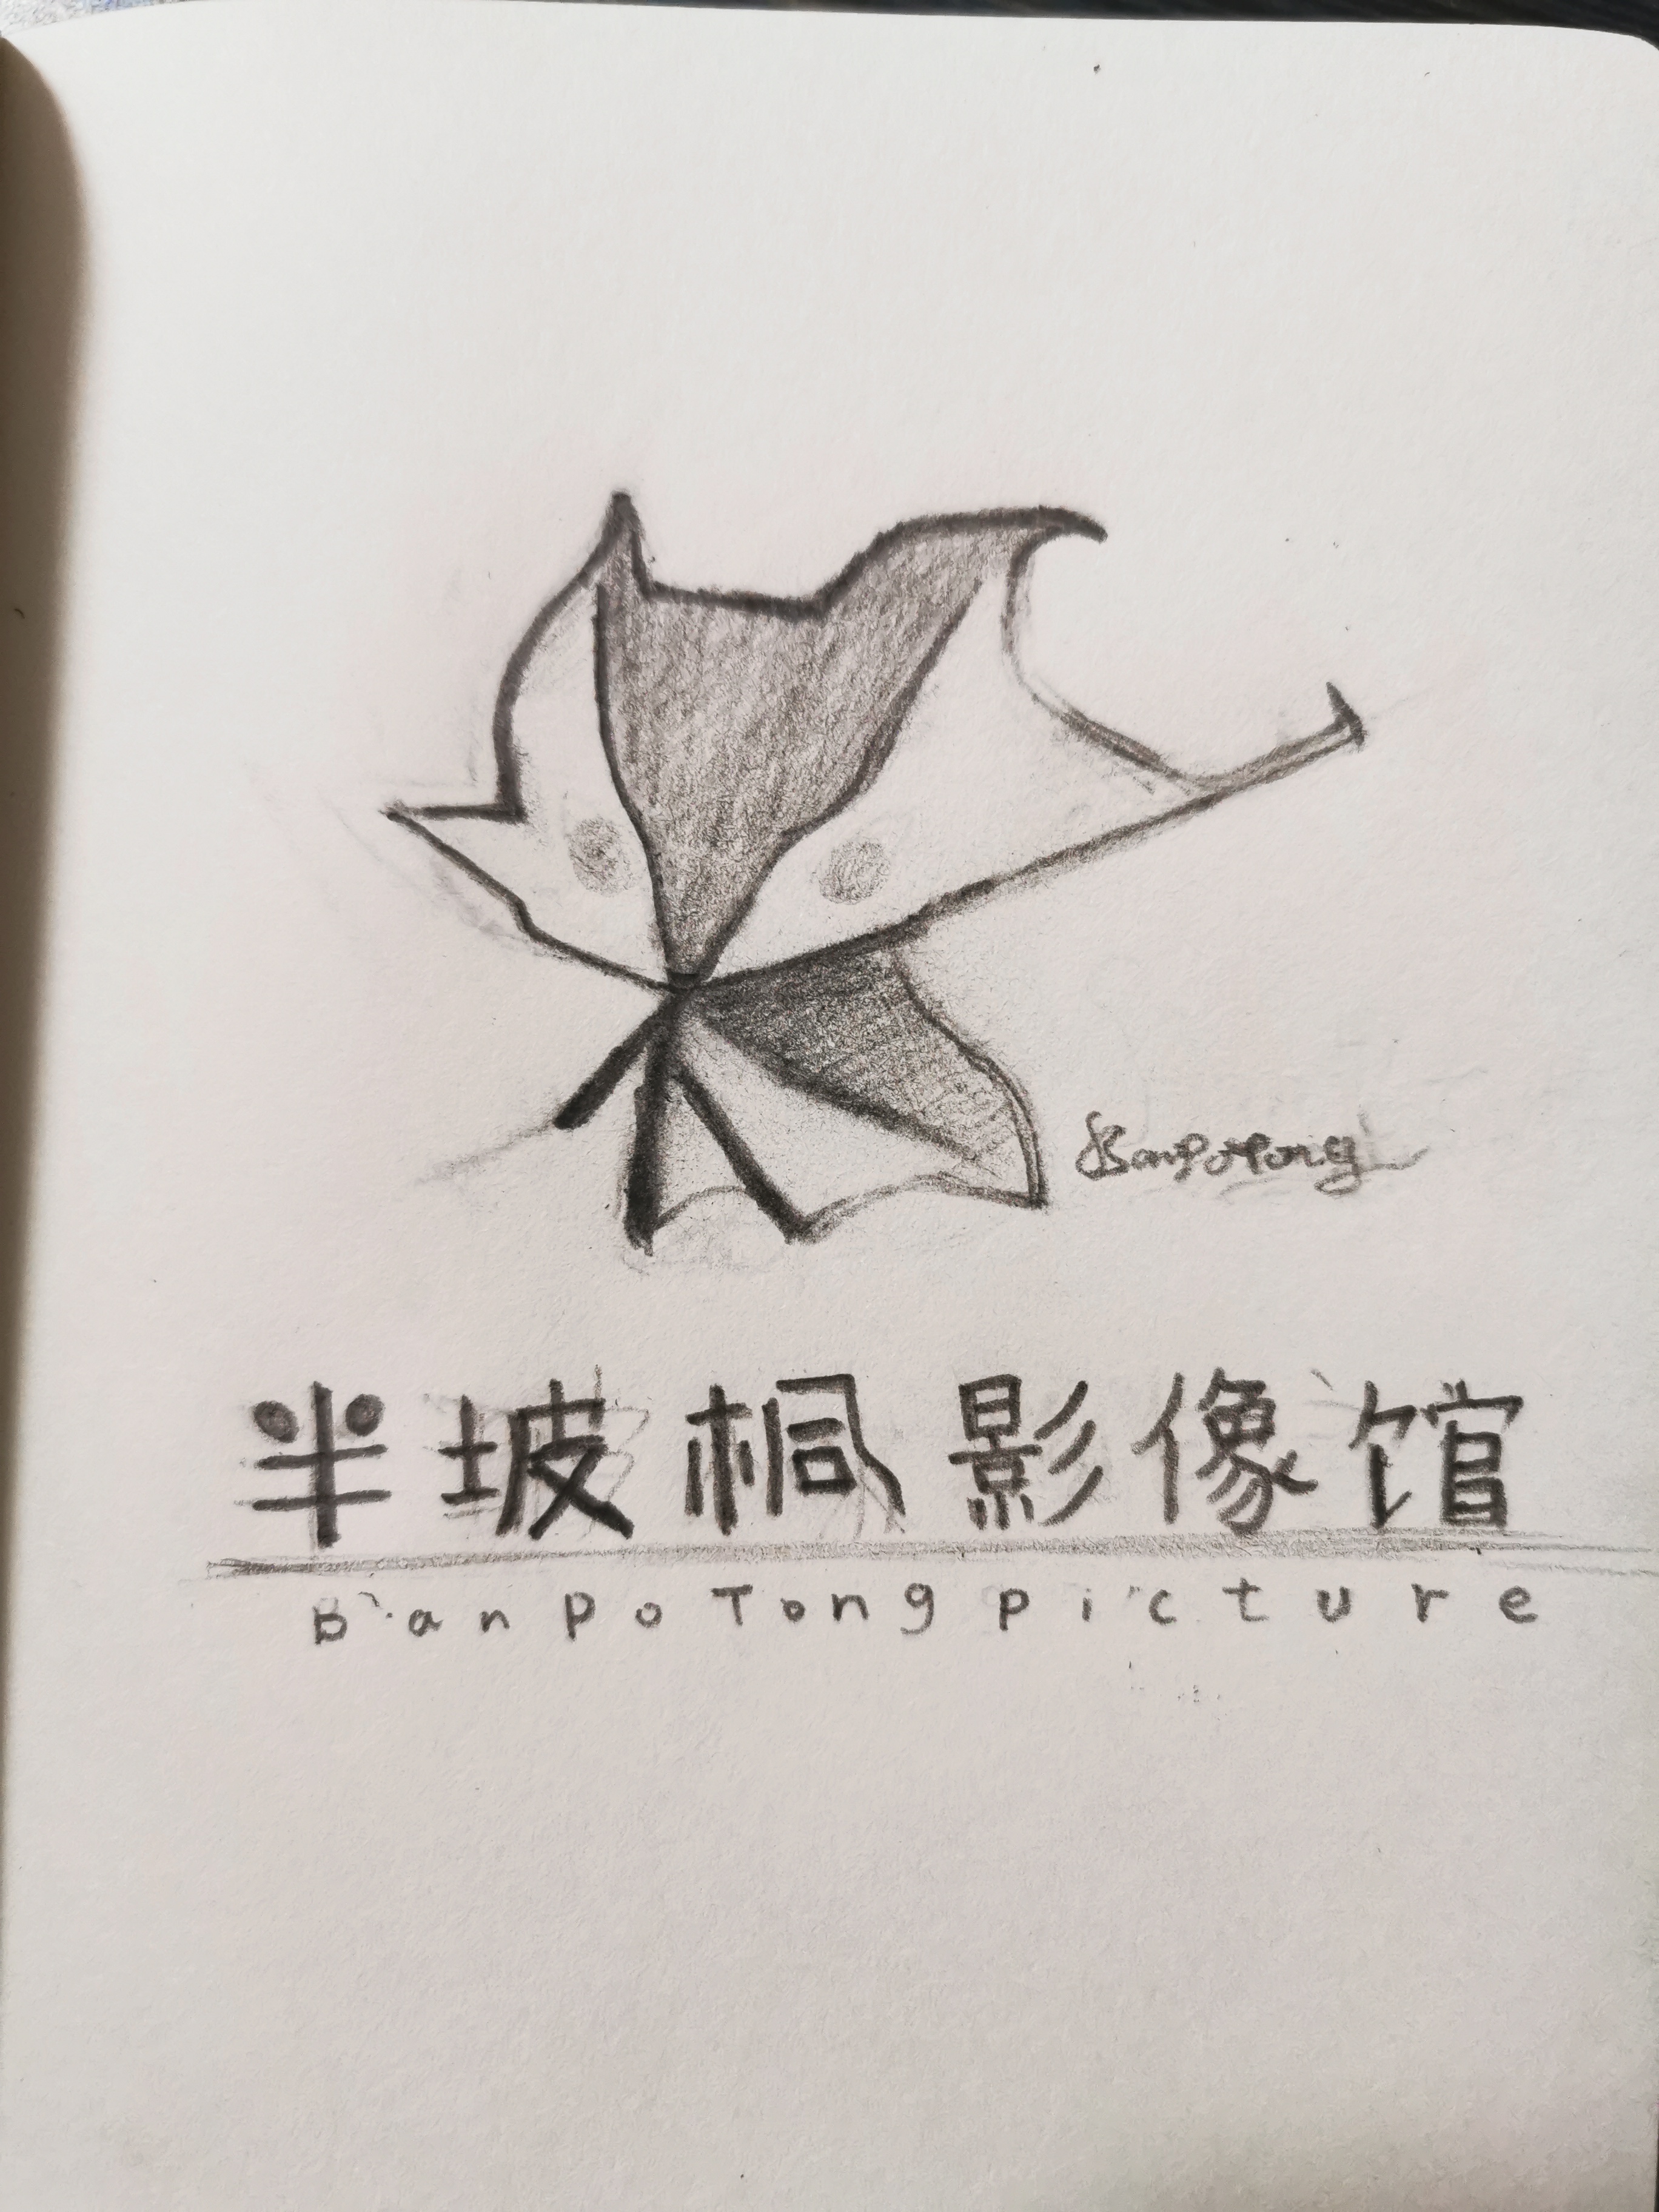 Banpotong
半坡桐影像馆
BanPoTong picture